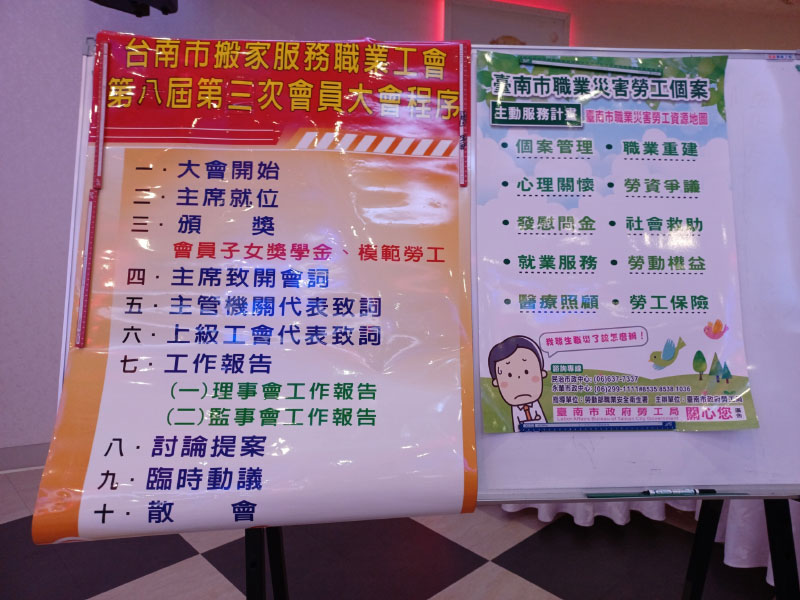 台南市搬家服務職業工會
第八屆第三次會員大會程序
一．大會開始
二．主席就位
三．頒　獎
會員子女獎學金、模範勞工
四．主席致開會詞
五．主管機關代表致詞
六．上級工會代表致詞
七．工作報告
(一)理事會工作報告
(二)監事會工作報告
八．討論提案
九．臨時動議
十．散　會
臺南市職業災害勞工個案
主動服務計畫 臺南市職業災害勞工資源地圖
• 個案管理 • 職業重建
• 心理關懷 • 勞資爭議
• 發慰問金 • 社會救助
• 就業服務 • 勞動權益
• 醫療照顧 • 勞工保險
我發生職災了該怎麼辦！
諮詢專線
民治市政中心：(06)637-7337
永華市政中心：(06)299-1111#8535.8538.1036
指導單位：勞動部職業安全衛生署 主辦單位：臺南市政府勞工局
臺南市政府勞工局 關心您 廣告
Labor Affairs Bureau of Tainan City Government